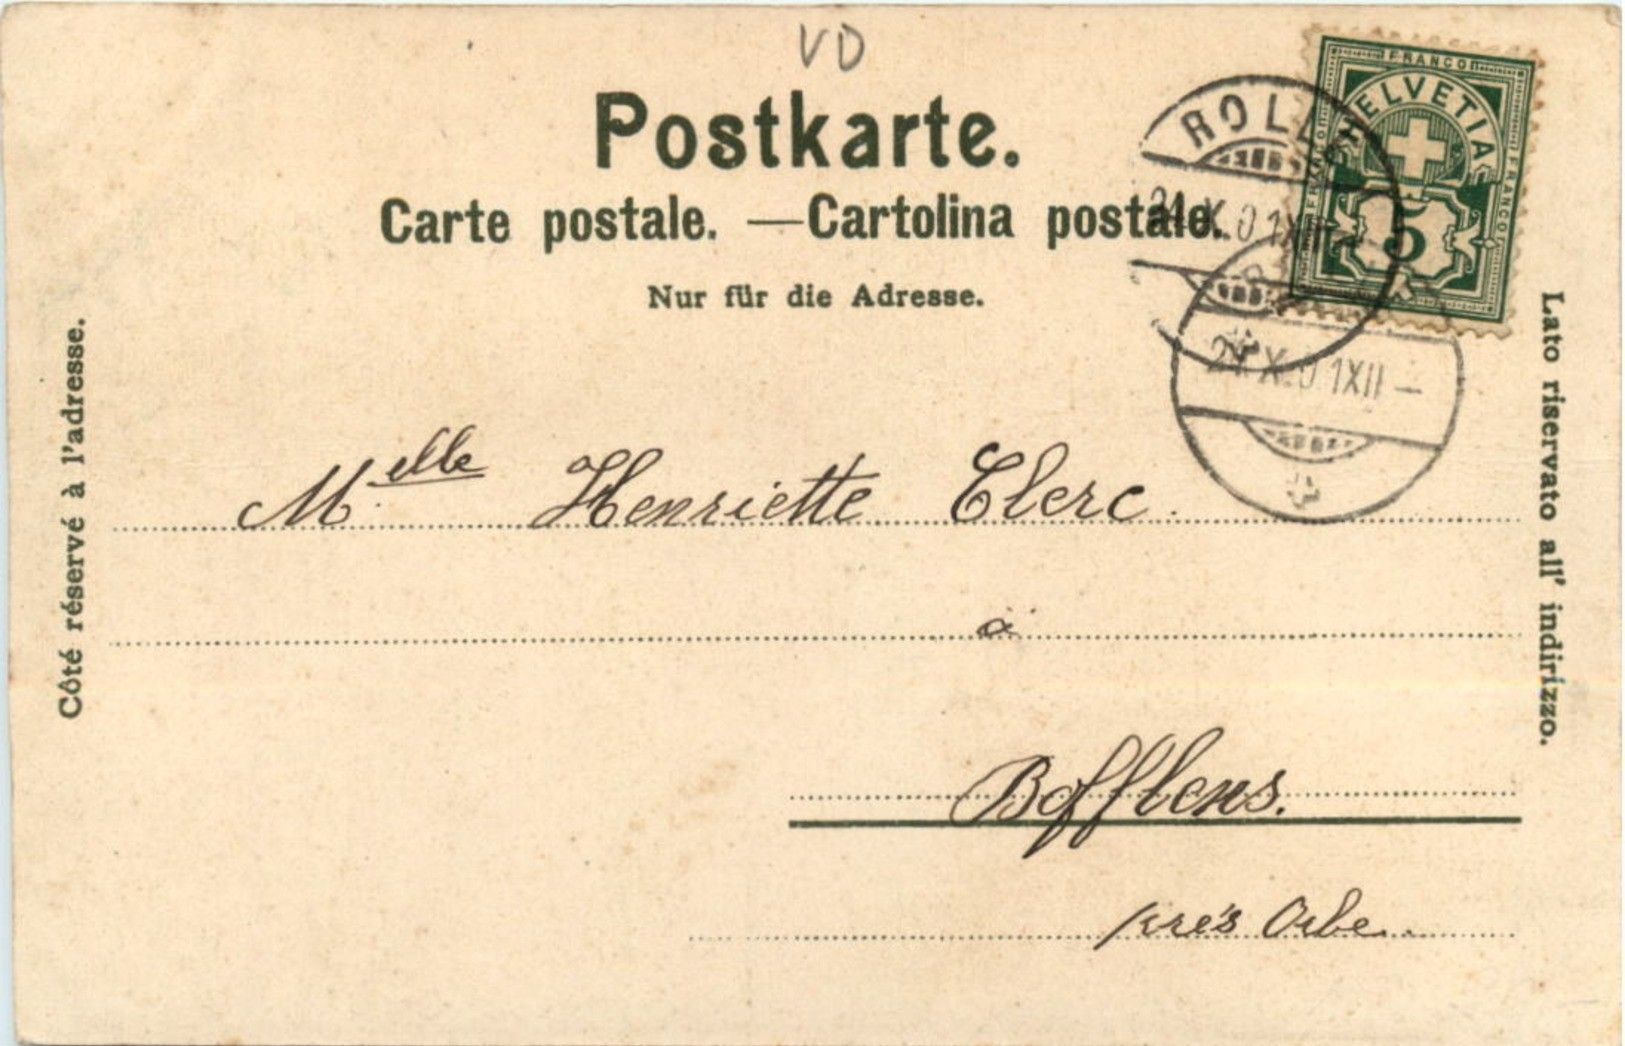 VD
Postkarte.
Carte postale. — Cartolina postale.
Nur für die Adresse.
FRANCO
HELVETIA
FRANCO
FRANCO
5
24.X.01XII
24.X.01XII–
Côté réservé à l'adresse.
Lato riservato all' indirizzo.
M.elle Henriette Clerc.
à
Bofflens.
près Orbe.